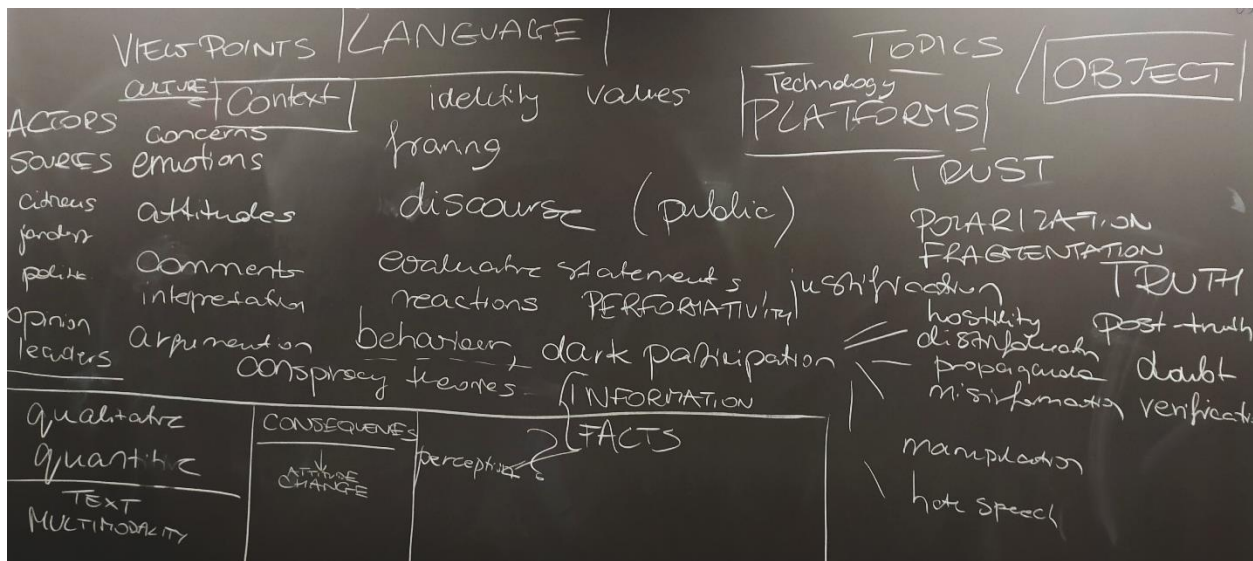 VIEWPOINTS LANGUAGE TOPICS / OBJECT
CULTURE Context identity values Technology
PLATFORMS
ACTORS concerns
SOURCES emotions framing TRUST
citizens attitudes discourse (public) POLARIZATION
FRAGMENTATION
politic comments evaluative statements justification TRUTH
interpretation reactions PERFORMATIVITY hostility post-truth
opinion
leaders argumentation behaviour, dark participation
propaganda doubt
conspiracy theories INFORMATION misinformation verificatio
qualitative CONSEQUENCES FACTS
perception ?
ATTITUDE
CHANGE
manipulation
TEXT
MULTIMODALITY
hate speech